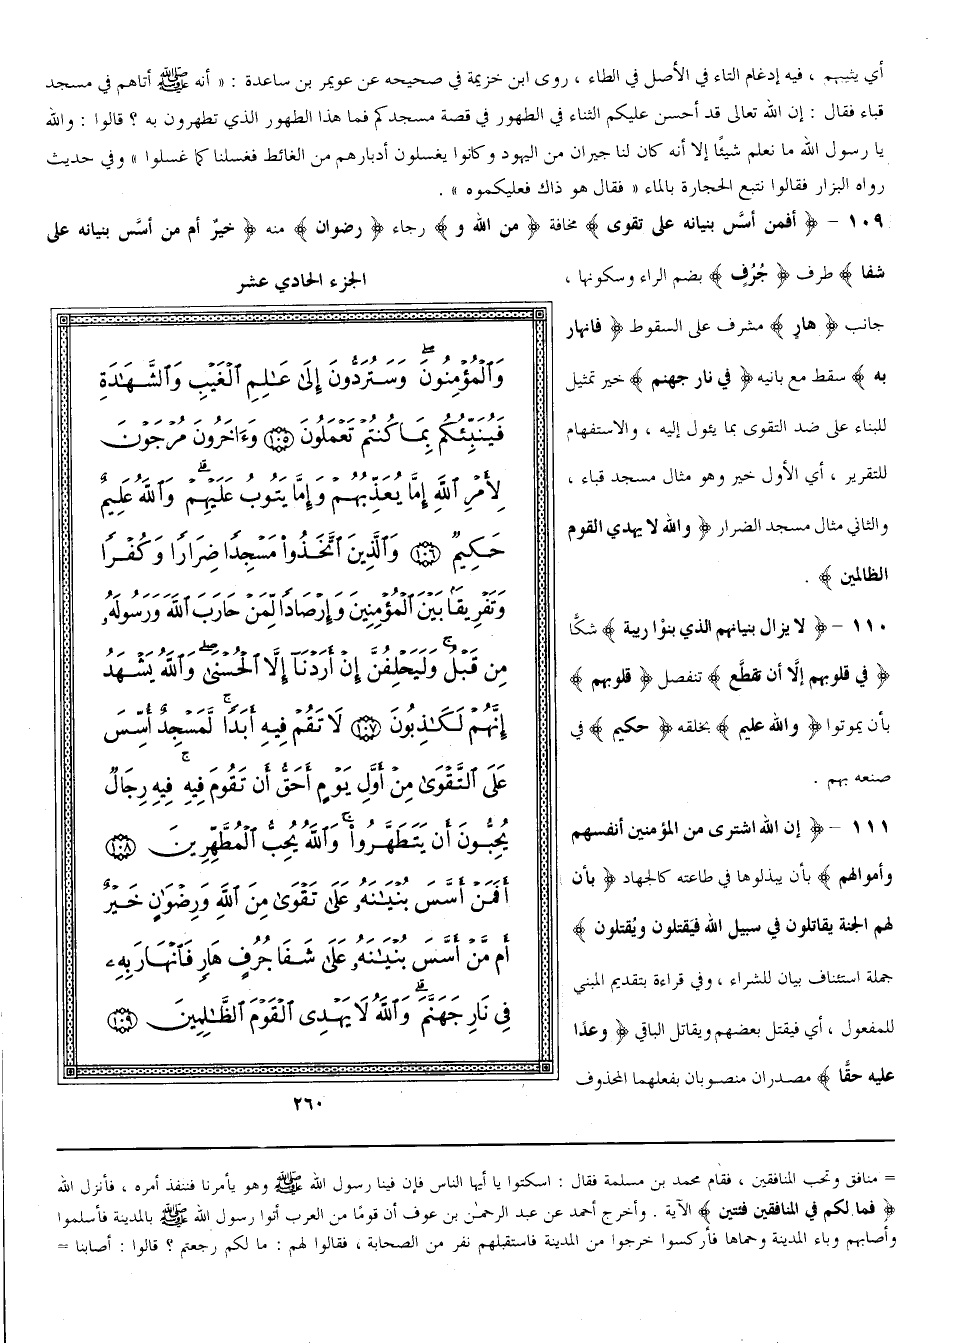 أي يثيبهم ، فيه إدغام التاء في الأصل في الطاء ، روى ابن خزيمة في صحيحه عن عويمر بن ساعدة : « أنه ﷺ أتاهم في مسجد
قباء فقال : إن الله تعالى قد أحسن عليكم الثناء في الطهور في قصة مسجدكم فما هذا الطهور الذي تطهرون به ؟ قالوا : والله
يا رسول الله ما نعلم شيئًا إلا أنه كان لنا جيران من اليهود وكانوا يغسلون أدبارهم من الغائط فغسلنا كما غسلوا » وفي حديث
رواه البزار فقالوا نتبع الحجارة بالماء « فقال هو ذاك فعليكموه » .
١٠٩ - ﴿ أفمن أسَّس بنيانه على تقوى ﴾ مخافة ﴿ من الله و ﴾ رجاء ﴿ رضوان ﴾ منه ﴿ خيرٌ أم من أسَّس بنيانه على
شفا ﴾ طرف ﴿ جُرُفٍ ﴾ بضم الراء وسكونها ،
جانب ﴿ هارٍ ﴾ مشرف على السقوط ﴿ فانهار
به ﴾ سقط مع بانيه ﴿ في نار جهنم ﴾ خير تمثيل
للبناء على ضد التقوى بما يئول إليه ، والاستفهام
للتقرير ، أي الأول خير وهو مثال مسجد قباء ،
والثاني مثال مسجد الضرار ﴿ والله لا يهدي القوم
الظالمين ﴾ .
١١٠ - ﴿ لا يزال بنيانهم الذي بنوْا ريبة ﴾ شكًّا
﴿ في قلوبهم إلَّا أن تقطَّع ﴾ تنفصل ﴿ قلوبهم ﴾
بأن يموتوا ﴿ والله عليم ﴾ بخلقه ﴿ حكيم ﴾ في
صنعه بهم .
١١١ - ﴿ إن الله اشترى من المؤمنين أنفسهم
وأموالهم ﴾ بأن يبذلوها في طاعته كالجهاد ﴿ بأن
لهم الجنة يقاتلون في سبيل الله فيَقتلون ويُقتلون ﴾
جملة استئناف بيان للشراء ، وفي قراءة بتقديم المبني
للمفعول ، أي فيقتل بعضهم ويقاتل الباقي ﴿ وعدًا
عليه حقًّا ﴾ مصدران منصوبان بفعلهما المحذوف
الجزء الحادي عشر
وَٱلْمُؤْمِنُونَ ۖ وَسَتُرَدُّونَ إِلَىٰ عَٰلِمِ ٱلْغَيْبِ وَٱلشَّهَٰدَةِ
فَيُنَبِّئُكُم بِمَا كُنتُمْ تَعْمَلُونَ ١٠٥ وَءَاخَرُونَ مُرْجَوْنَ
لِأَمْرِ ٱللَّهِ إِمَّا يُعَذِّبُهُمْ وَإِمَّا يَتُوبُ عَلَيْهِمْ ۗ وَٱللَّهُ عَلِيمٌ
حَكِيمٌ ١٠٦ وَٱلَّذِينَ ٱتَّخَذُوا۟ مَسْجِدًا ضِرَارًا وَكُفْرًا
وَتَفْرِيقًۢا بَيْنَ ٱلْمُؤْمِنِينَ وَإِرْصَادًا لِّمَنْ حَارَبَ ٱللَّهَ وَرَسُولَهُۥ
مِن قَبْلُ ۚ وَلَيَحْلِفُنَّ إِنْ أَرَدْنَآ إِلَّا ٱلْحُسْنَىٰ ۖ وَٱللَّهُ يَشْهَدُ
إِنَّهُمْ لَكَٰذِبُونَ ١٠٧ لَا تَقُمْ فِيهِ أَبَدًا ۚ لَّمَسْجِدٌ أُسِّسَ
عَلَى ٱلتَّقْوَىٰ مِنْ أَوَّلِ يَوْمٍ أَحَقُّ أَن تَقُومَ فِيهِ ۚ فِيهِ رِجَالٌ
يُحِبُّونَ أَن يَتَطَهَّرُوا۟ ۚ وَٱللَّهُ يُحِبُّ ٱلْمُطَّهِّرِينَ ١٠٨
أَفَمَنْ أَسَّسَ بُنْيَٰنَهُۥ عَلَىٰ تَقْوَىٰ مِنَ ٱللَّهِ وَرِضْوَٰنٍ خَيْرٌ
أَم مَّنْ أَسَّسَ بُنْيَٰنَهُۥ عَلَىٰ شَفَا جُرُفٍ هَارٍ فَٱنْهَارَ بِهِۦ
فِى نَارِ جَهَنَّمَ ۗ وَٱللَّهُ لَا يَهْدِى ٱلْقَوْمَ ٱلظَّٰلِمِينَ ١٠٩
٢٦٠
= منافق وتحب المنافقين ، فقام محمد بن مسلمة فقال : اسكتوا يا أيها الناس فإن فينا رسول الله ﷺ وهو يأمرنا فننفذ أمره ، فأنزل الله
﴿ فما لكم في المنافقين فئتين ﴾ الآية . وأخرج أحمد عن عبد الرحمن بن عوف أن قومًا من العرب أتوا رسول الله ﷺ بالمدينة فأسلموا
وأصابهم وباء المدينة وحماها فأركسوا خرجوا من المدينة فاستقبلهم نفر من الصحابة ، فقالوا لهم : ما لكم رجعتم ؟ قالوا : أصابنا =